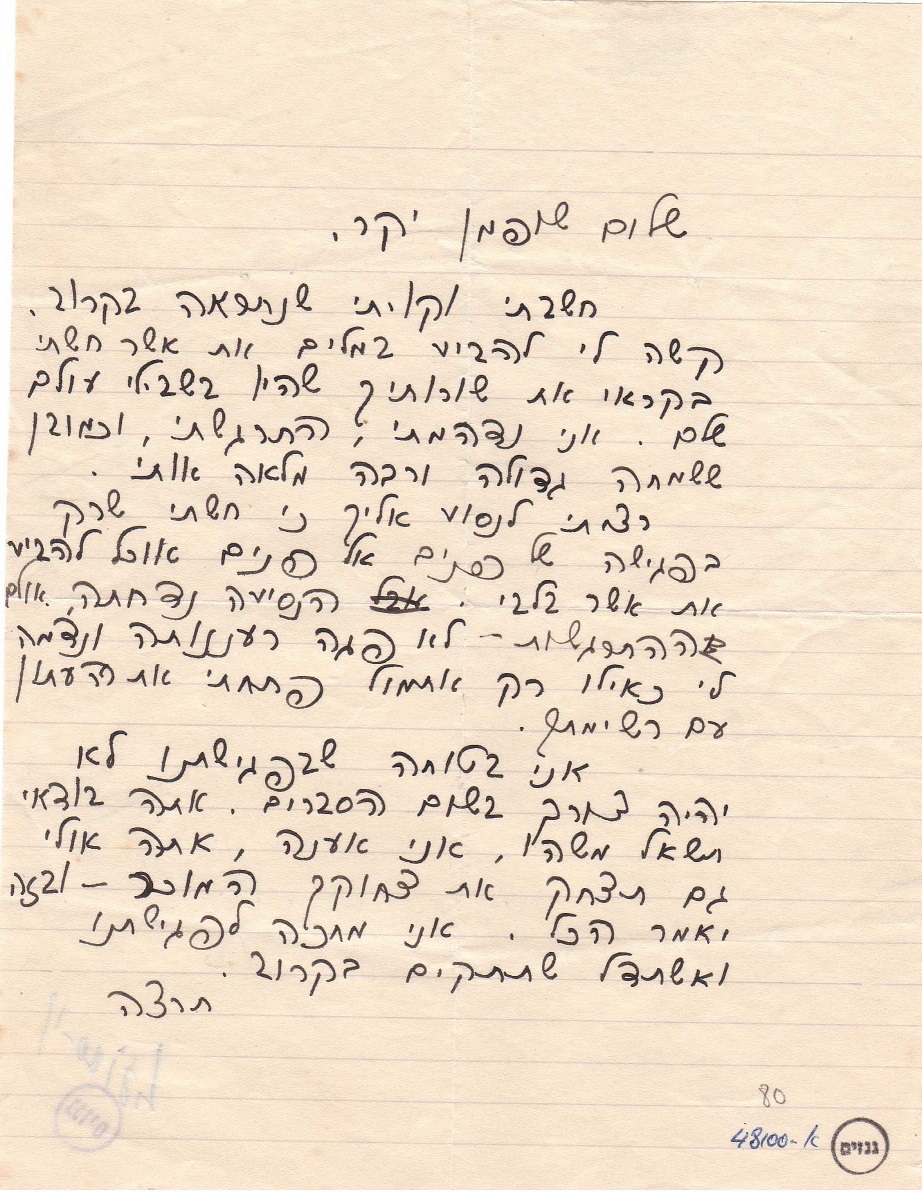 שלום שופמן יקר,
חשבתי וקויתי שנתראה בקרוב.
קשה לי להביע במלים את אשר חשתי
בקראי את שורותיך שהיו בשבילי עולם
שלם. אני נדהמתי, התרגשתי, וכמובן
ששמחה גדולה ורבה מלאה אותי.
רציתי לנסוע אליך כי חשתי שרק
בפגישה של פנים אל פנים אוכל להביע
את אשר בלבי. אבל הנסיעה נדחתה, אולם
ההתרגשות – לא פגה רעננותה ונדמה
לי כאילו רק אתמול פתחתי את העתון
עם רשימתך.
אני בטוחה שבפגישתנו לא
יהיה צורך בשום הסברים. אתה בודאי
תשאל משהו, אני אענה, אתה אולי
גם תצחק את צחוקך המוכר – ובזה
יאמר הכל. אני מחכה לפגישתנו
ואשתדל שתתקים בקרוב.
תרצה
80
א-48100
גנזים